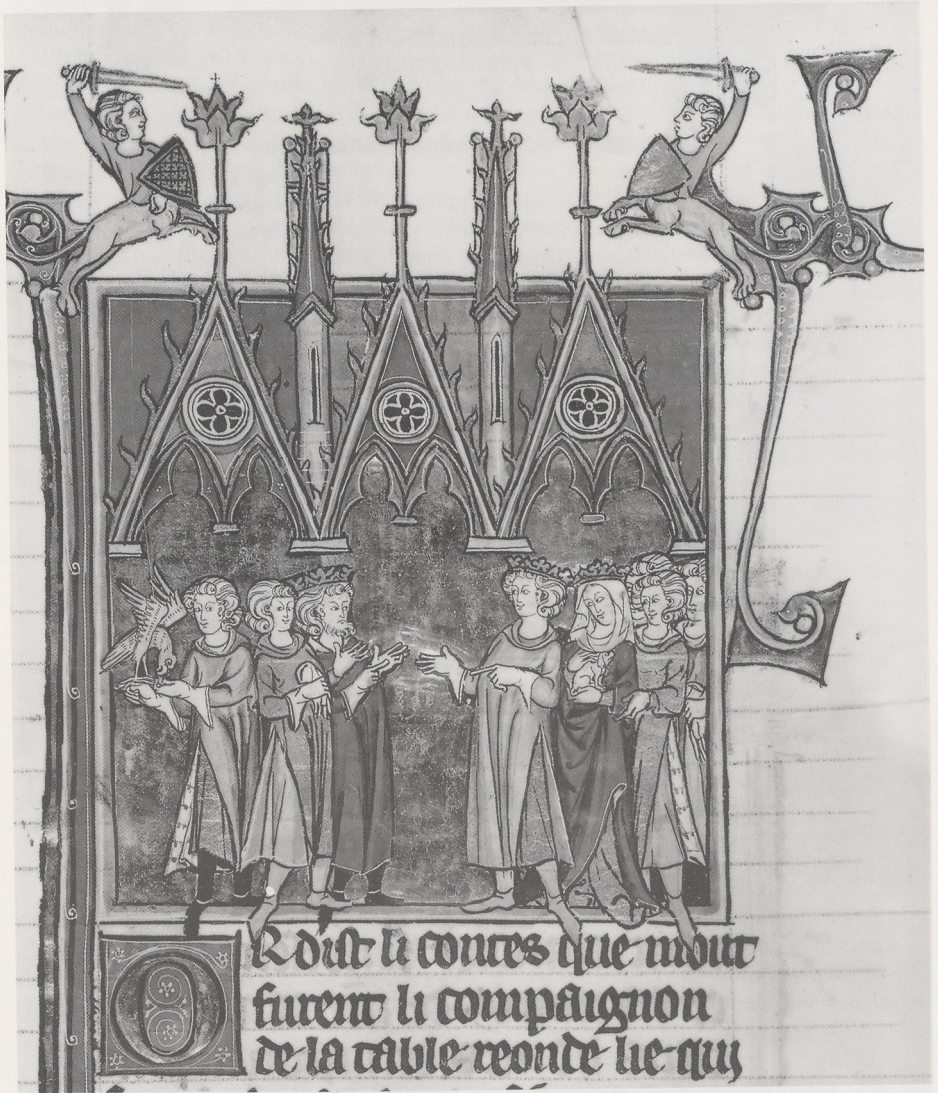 OR dist li contes que mout
furent li compaignon
de la table reonde lie qui